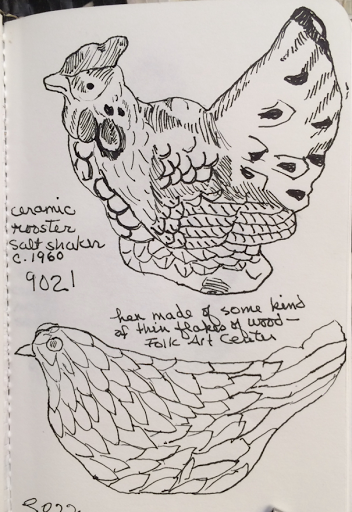 ceramic
rooster
salt shaker
c. 1960
9021
hen made of some kind
of thin flakes of wood—
Folk Art Center